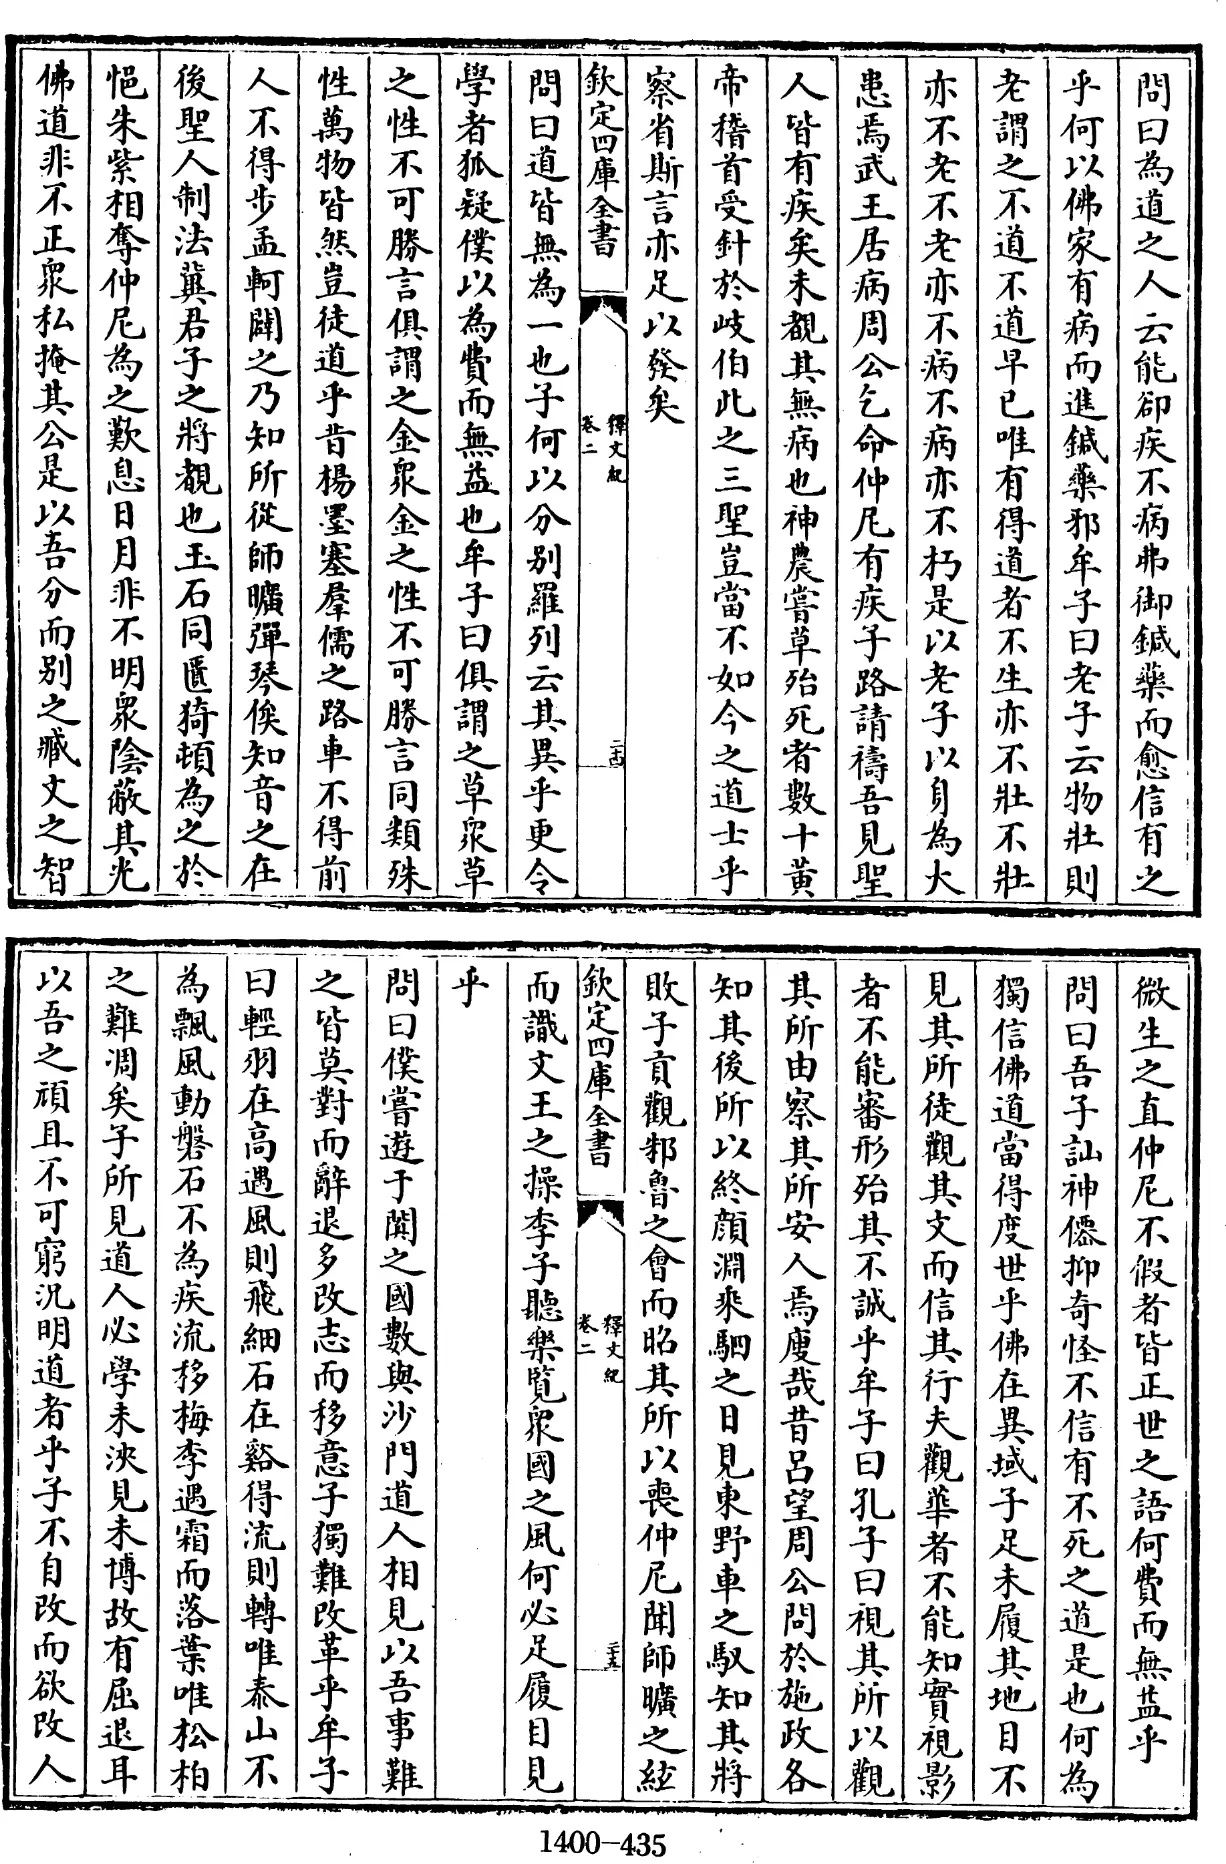 問曰為道之人云能卻疾不病弗御鍼藥而愈信有之
乎何以佛家有病而進鍼藥邪牟子曰老子云物壯則
老謂之不道不道早已唯有得道者不生亦不壯不壯
亦不老不老亦不病不病亦不朽是以老子以身為大
患焉武王居病周公乞命仲尼有疾子路請禱吾見聖
人皆有疾矣未覩其無病也神農嘗草殆死者數十黃
帝稽首受針於岐伯此之三聖豈當不如今之道士乎
察省斯言亦足以發矣
欽定四庫全書
釋文紀
卷二
二十四
問曰道皆無為一也子何以分別羅列云其異乎更令
學者狐疑僕以為費而無益也牟子曰俱謂之草衆草
之性不可勝言俱謂之金衆金之性不可勝言同類殊
性萬物皆然豈徒道乎昔楊墨塞羣儒之路車不得前
人不得步孟軻闢之乃知所從師曠彈琴俟知音之在
後聖人制法冀君子之將覩也玉石同匱猗頓為之於
悒朱紫相奪仲尼為之歎息日月非不明衆陰蔽其光
佛道非不正衆私掩其公是以吾分而別之臧文之智
微生之直仲尼不假者皆正世之語何費而無益乎
問曰吾子訕神僊抑奇怪不信有不死之道是也何為
獨信佛道當得度世乎佛在異域子足未履其地目不
見其所徒觀其文而信其行夫觀華者不能知實視影
者不能審形殆其不誠乎牟子曰孔子曰視其所以觀
其所由察其所安人焉廋哉昔呂望周公問於施政各
知其後所以終顔淵乘駟之日見東野車之馭知其將
敗子貢觀邾魯之會而昭其所以喪仲尼聞師曠之絃
欽定四庫全書
釋文紀
卷二
二十五
而識文王之操李子聽樂覽衆國之風何必足履目見
乎
問曰僕嘗遊于闐之國數與沙門道人相見以吾事難
之皆莫對而辭退多改志而移意子獨難改革乎牟子
曰輕羽在高遇風則飛細石在谿得流則轉唯泰山不
為飄風動磐石不為疾流移梅李遇霜而落葉唯松柏
之難凋矣子所見道人必學未浹見未博故有屈退耳
以吾之頑且不可窮況明道者乎子不自改而欲改人
1400-435